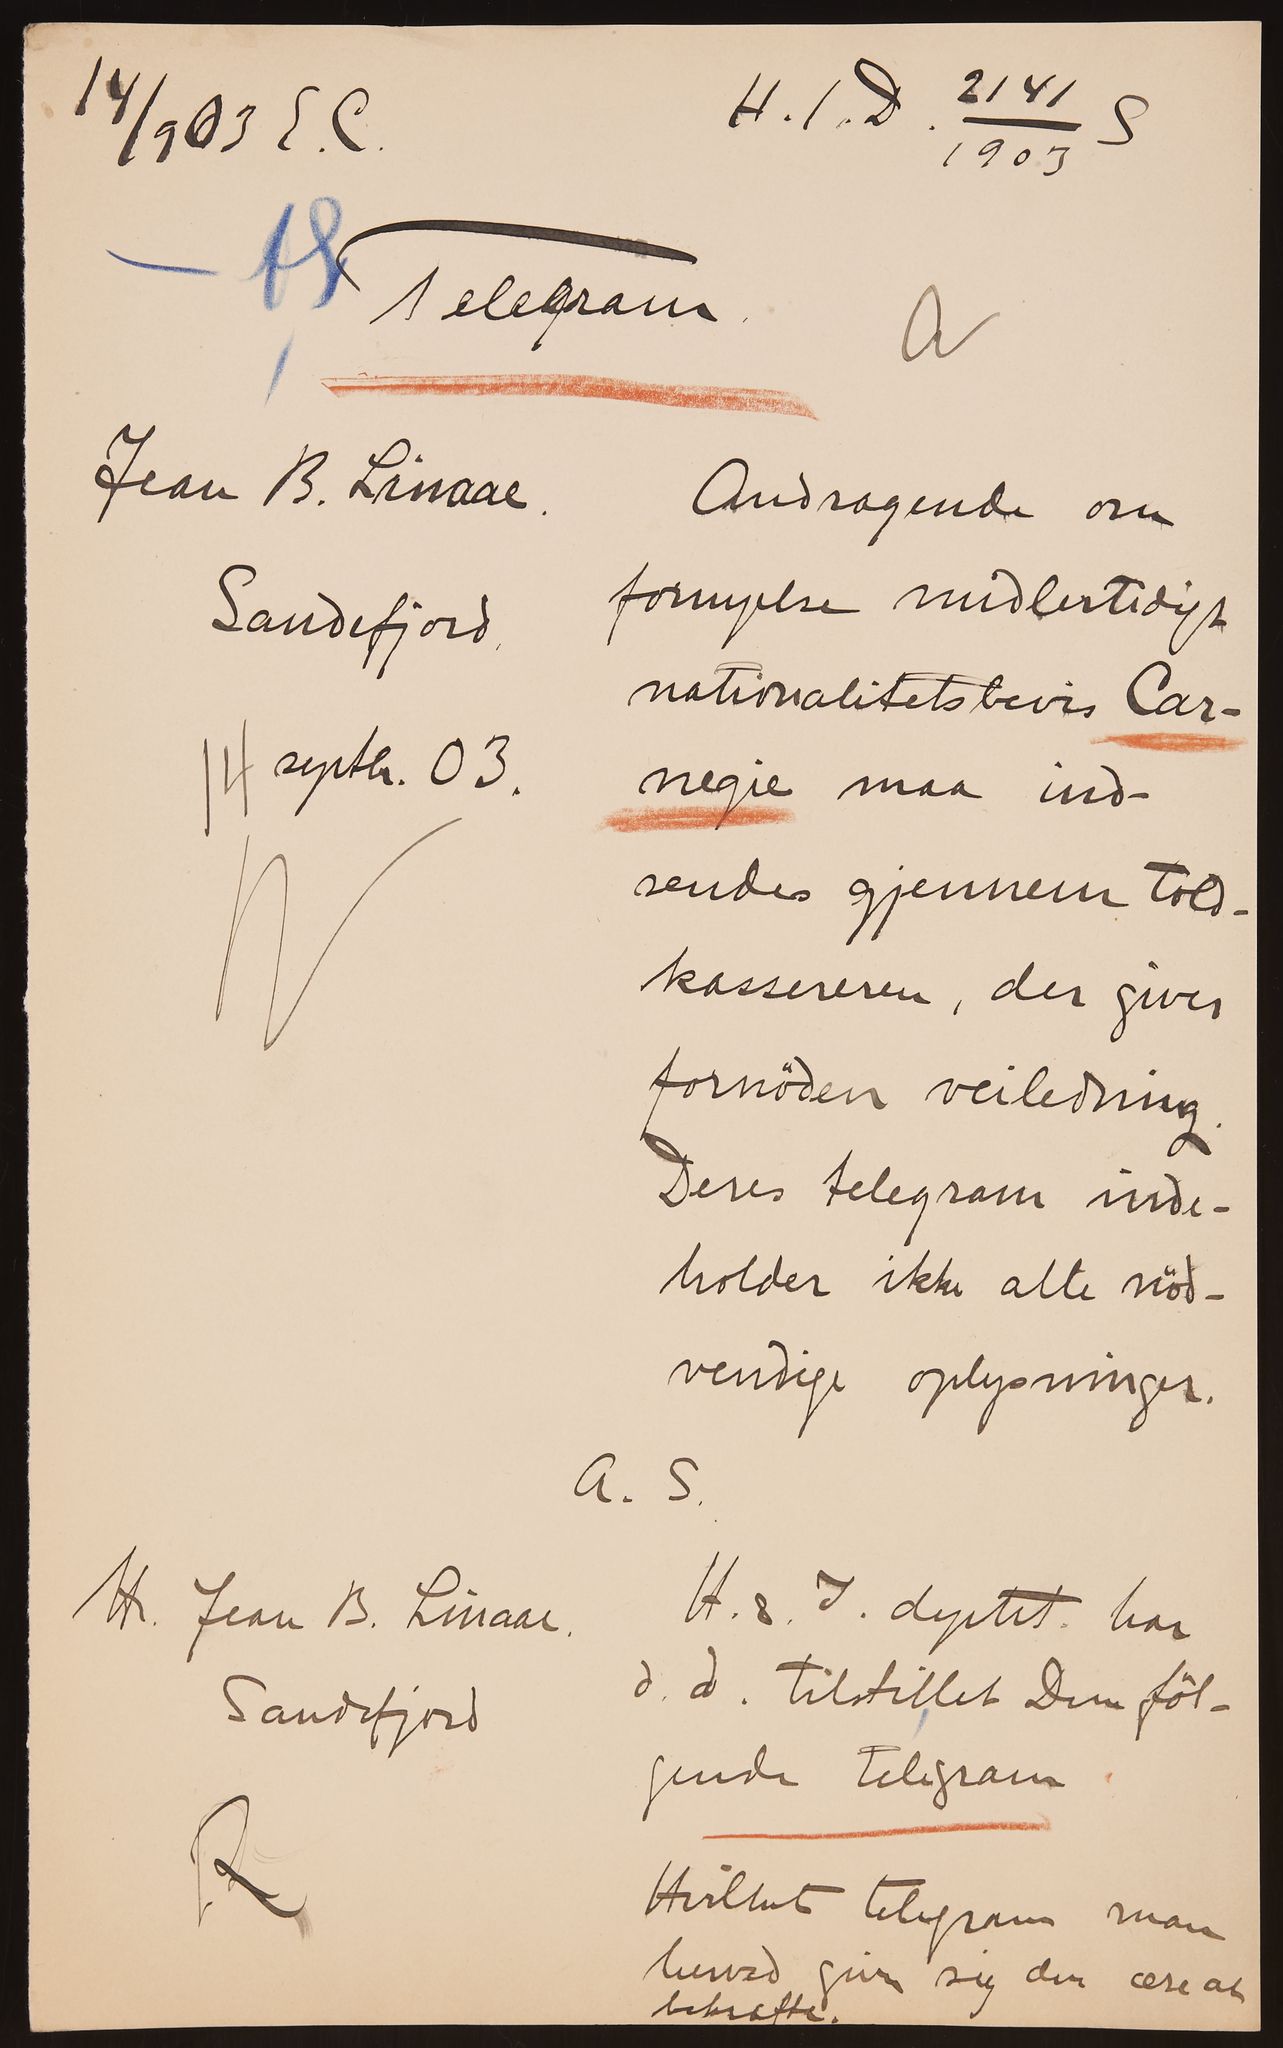 14/9 03 E.C.
H.I.D. 2141/1903 S
Telegram.
a
Jean B. Linaae.
Sandefjord.
14 septbr. 03.
Andragende om
fornyelse midlertidigt
nationalitetsbevis Car-
negie maa ind-
sendes gjennem told-
kassereren, der giver
fornöden veiledning.
Deres telegram inde-
holder ikke alle nöd-
vendige oplysninger.
A. S.
Hr. Jean B. Linaae.
Sandefjord
H. & I. deptet. har
d. d. tilstillet Dem föl-
gende telegram
Hvilket telegram man
herved giver sig den ære at
bekræfte.